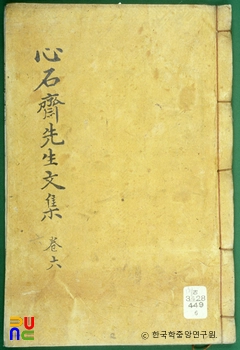 心石齋先生文集
卷六
3528
449
6
FUN
ⓒ 한국학중앙연구원